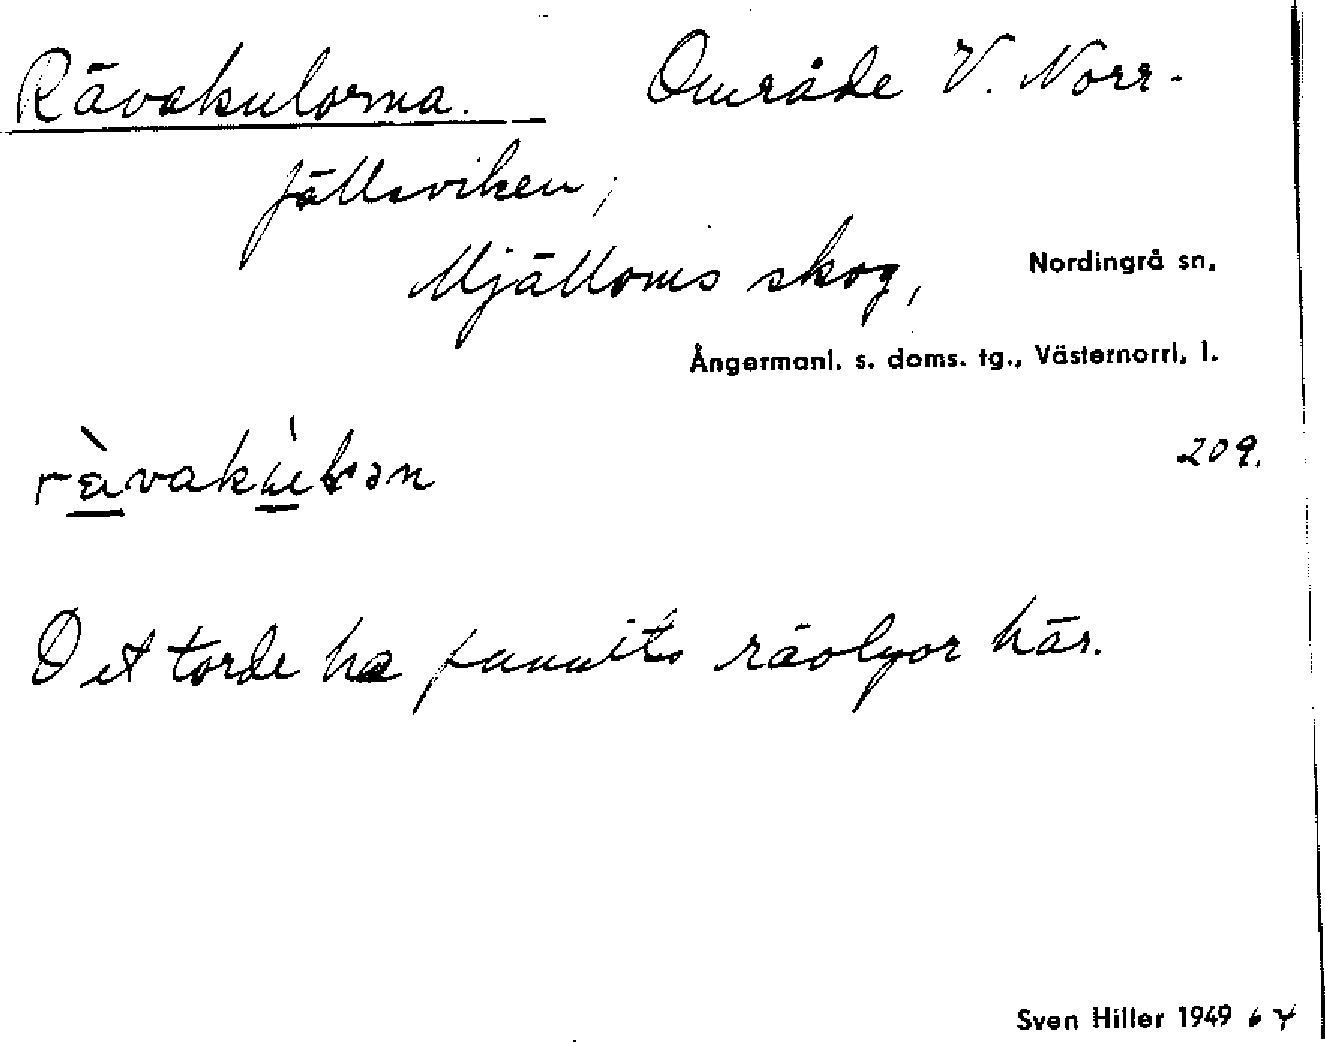 Rävakulorna. Område V. Norr-
fällsviken,
Mjälloms skog, Nordingrå sn,
Ångermanl. s. doms. tg., Västernorrl. l.
209.
Det torde ha funnits rävlyor här.
Sven Hiller 1949